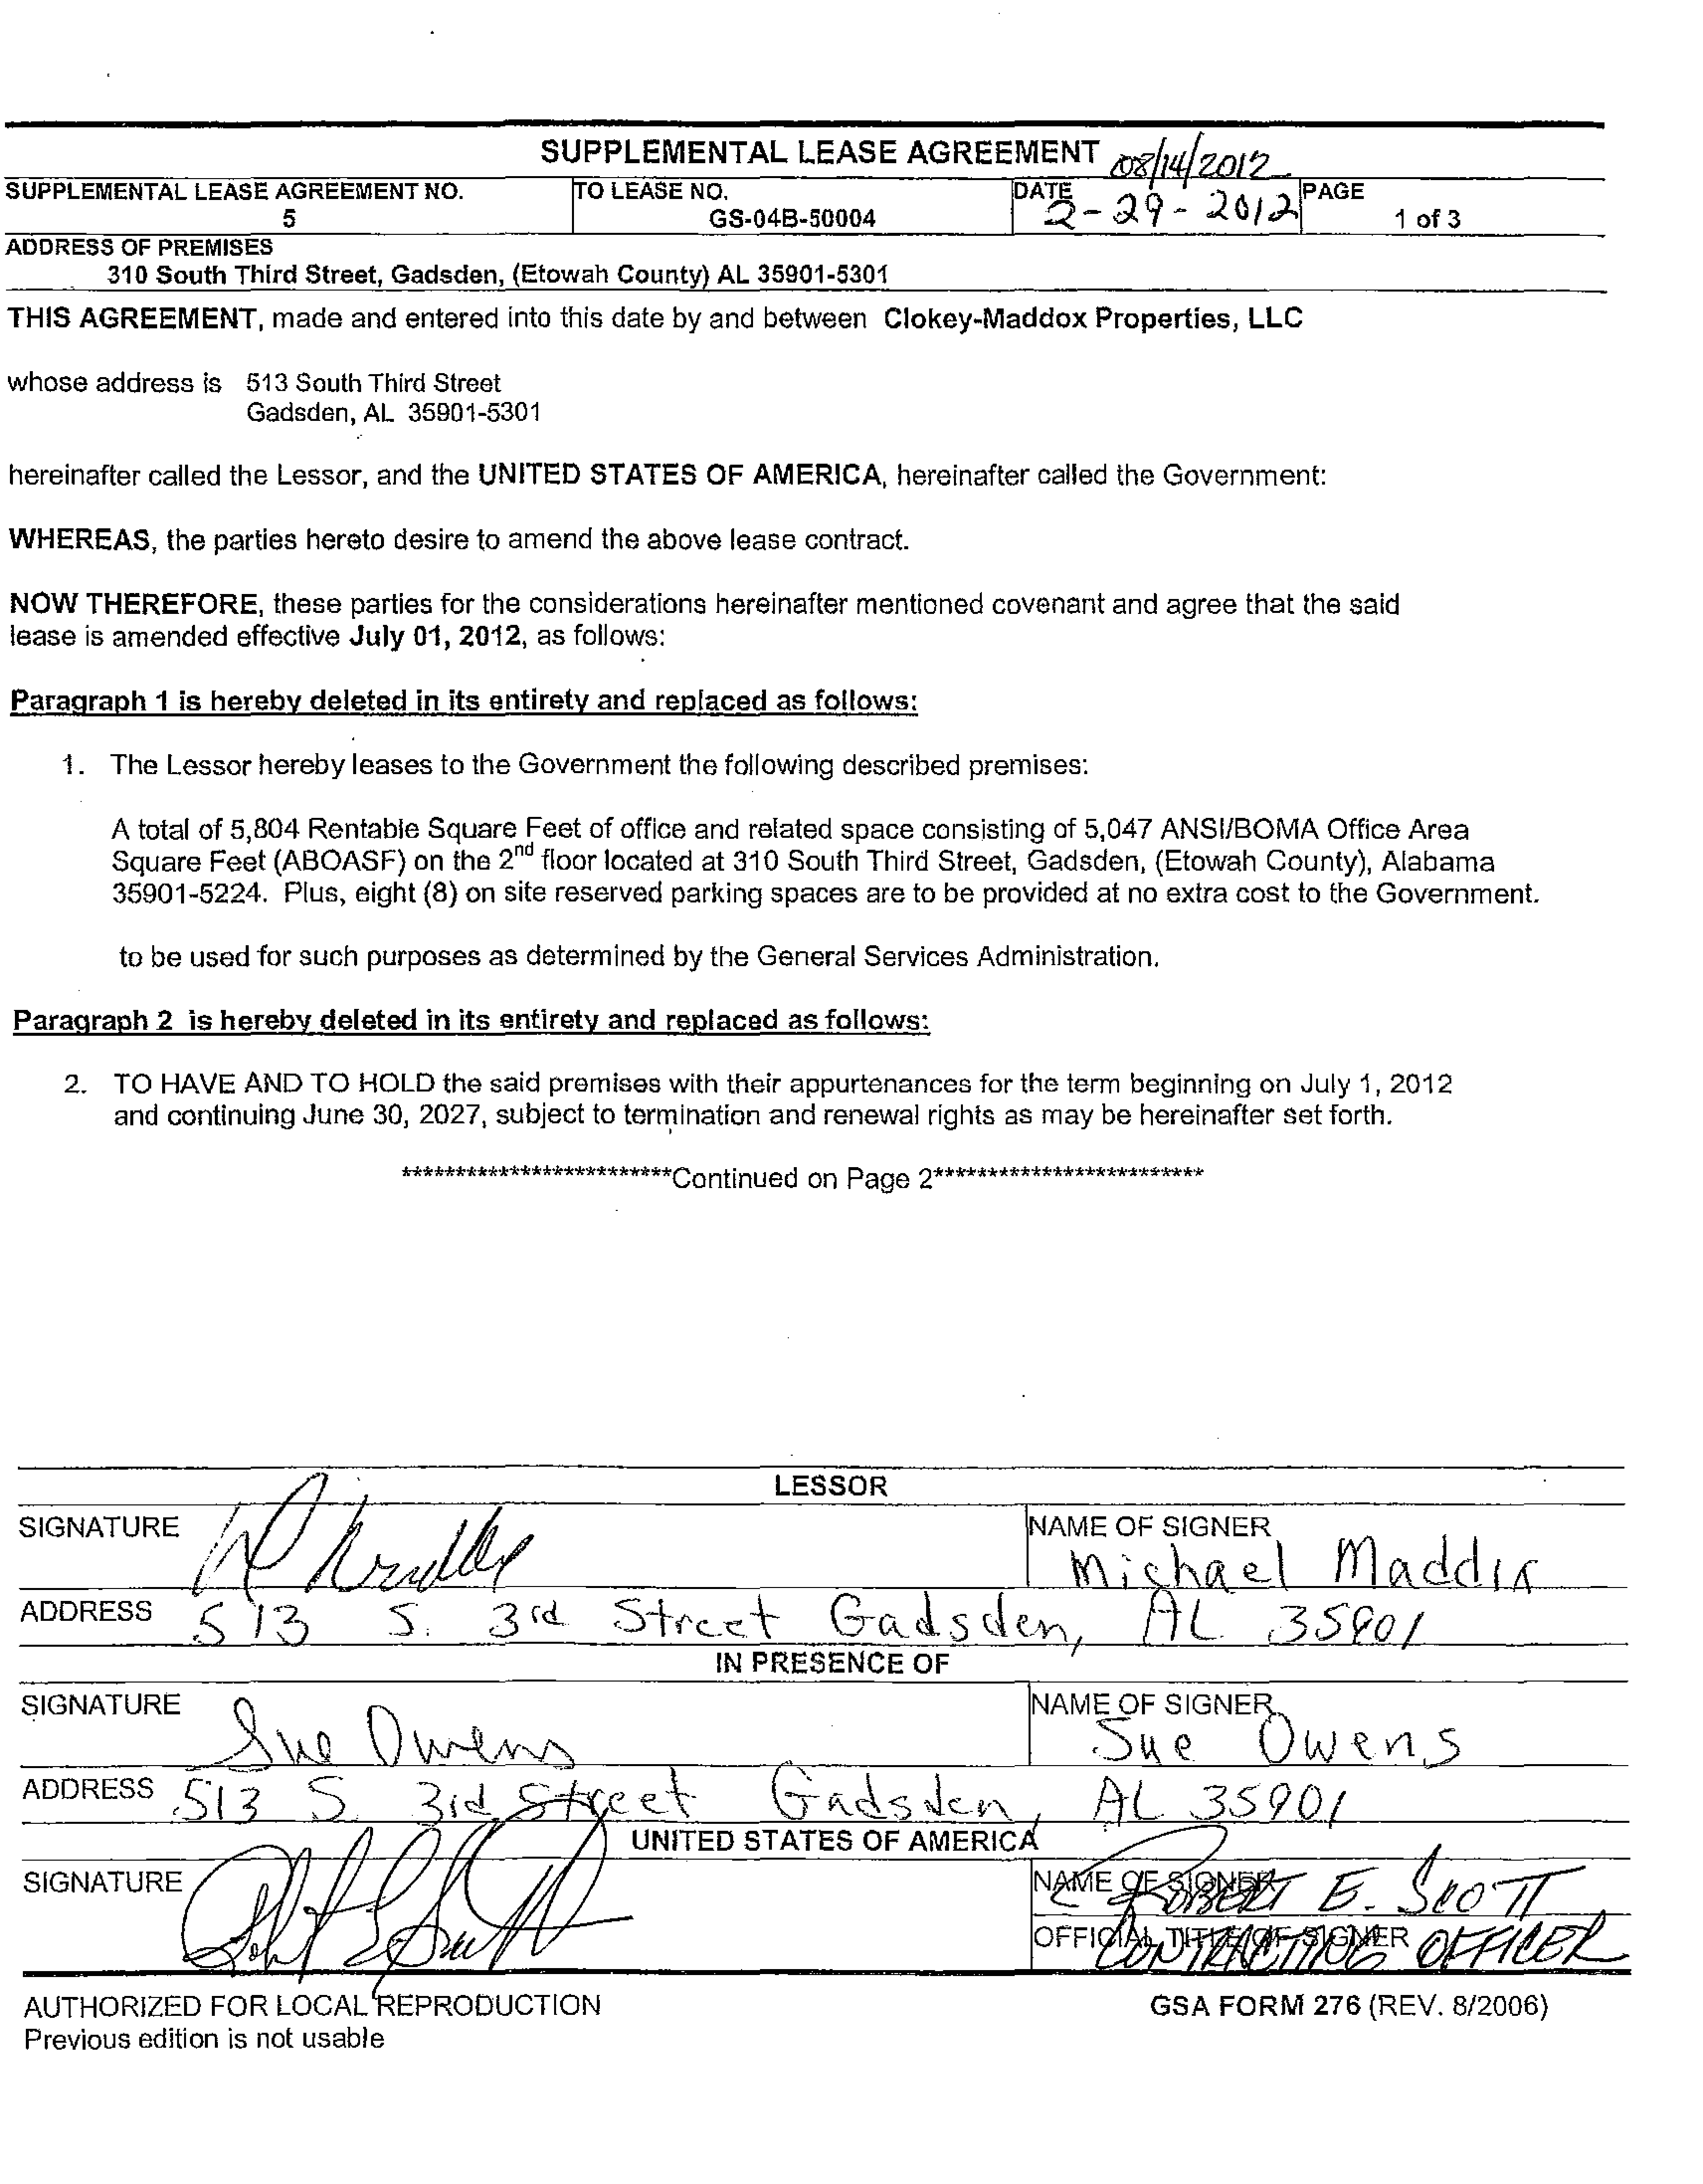 SUPPLEMENTAL LEASE AGREEMENT 08/14/2012
SUPPLEMENTAL LEASE AGREEMENT NO. TO LEASE NO. DATE PAGE
5 GS-04B-50004 2-29-2012 1 of 3
ADDRESS OF PREMISES
310 South Third Street, Gadsden, (Etowah County) AL 35901-5301
THIS AGREEMENT, made and entered into this date by and between Clokey-Maddox Properties, LLC
whose address is 513 South Third Street
Gadsden, AL 35901-5301
hereinafter called the Lessor, and the UNITED STATES OF AMERICA, hereinafter called the Government:
WHEREAS, the parties hereto desire to amend the above lease contract.
NOW THEREFORE, these parties for the considerations hereinafter mentioned covenant and agree that the said
lease is amended effective July 01, 2012, as follows:
Paragraph 1 is hereby deleted in its entirety and replaced as follows:
1. The Lessor hereby leases to the Government the following described premises:
A total of 5,804 Rentable Square Feet of office and related space consisting of 5,047 ANSI/BOMA Office Area
Square Feet (ABOASF) on the 2nd floor located at 310 South Third Street, Gadsden, (Etowah County), Alabama
35901-5224. Plus, eight (8) on site reserved parking spaces are to be provided at no extra cost to the Government.
to be used for such purposes as determined by the General Services Administration.
Paragraph 2 is hereby deleted in its entirety and replaced as follows:
2. TO HAVE AND TO HOLD the said premises with their appurtenances for the term beginning on July 1, 2012
and continuing June 30, 2027, subject to termination and renewal rights as may be hereinafter set forth.
*************************Continued on Page 2*************************
LESSOR
SIGNATURE NAME OF SIGNER
Michael Maddix
ADDRESS 513 S. 3rd Street Gadsden, AL 35901
IN PRESENCE OF
SIGNATURE NAME OF SIGNER
Sue Owens Sue Owens
ADDRESS 513 S. 3rd Street Gadsden, AL 35901
UNITED STATES OF AMERICA
SIGNATURE NAME OF SIGNER
ROBERT E. SCOTT
OFFICIAL TITLE OF SIGNER
CONTRACTING OFFICER
AUTHORIZED FOR LOCAL REPRODUCTION GSA FORM 276 (REV. 8/2006)
Previous edition is not usable